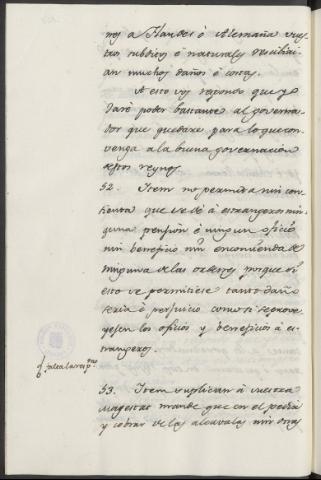 nos a Flandes ó Alemaña vues
tros subditos é naturales recibiri
an muchos daños é costas.
A esto vos respondo que yo
daré poder bastante al governa
dor que quedare para lo que con
venga a la buena governacion
destos reynos.
52. Item no permita nin con
sienta que se dé á estrangeros nin
guna pension é ningun oficio
nin beneficio nin encomienda de
ninguna de las ordenes porque si
esto se permitiese tanto daño
seria é perjuicio como si se prove
yesen los oficios y beneficios á es
trangeros.
falta la resp.ta
53. Item suplican á vuestra
magestat mande que en el pedir
y cobrar de las alcavalas nin otras